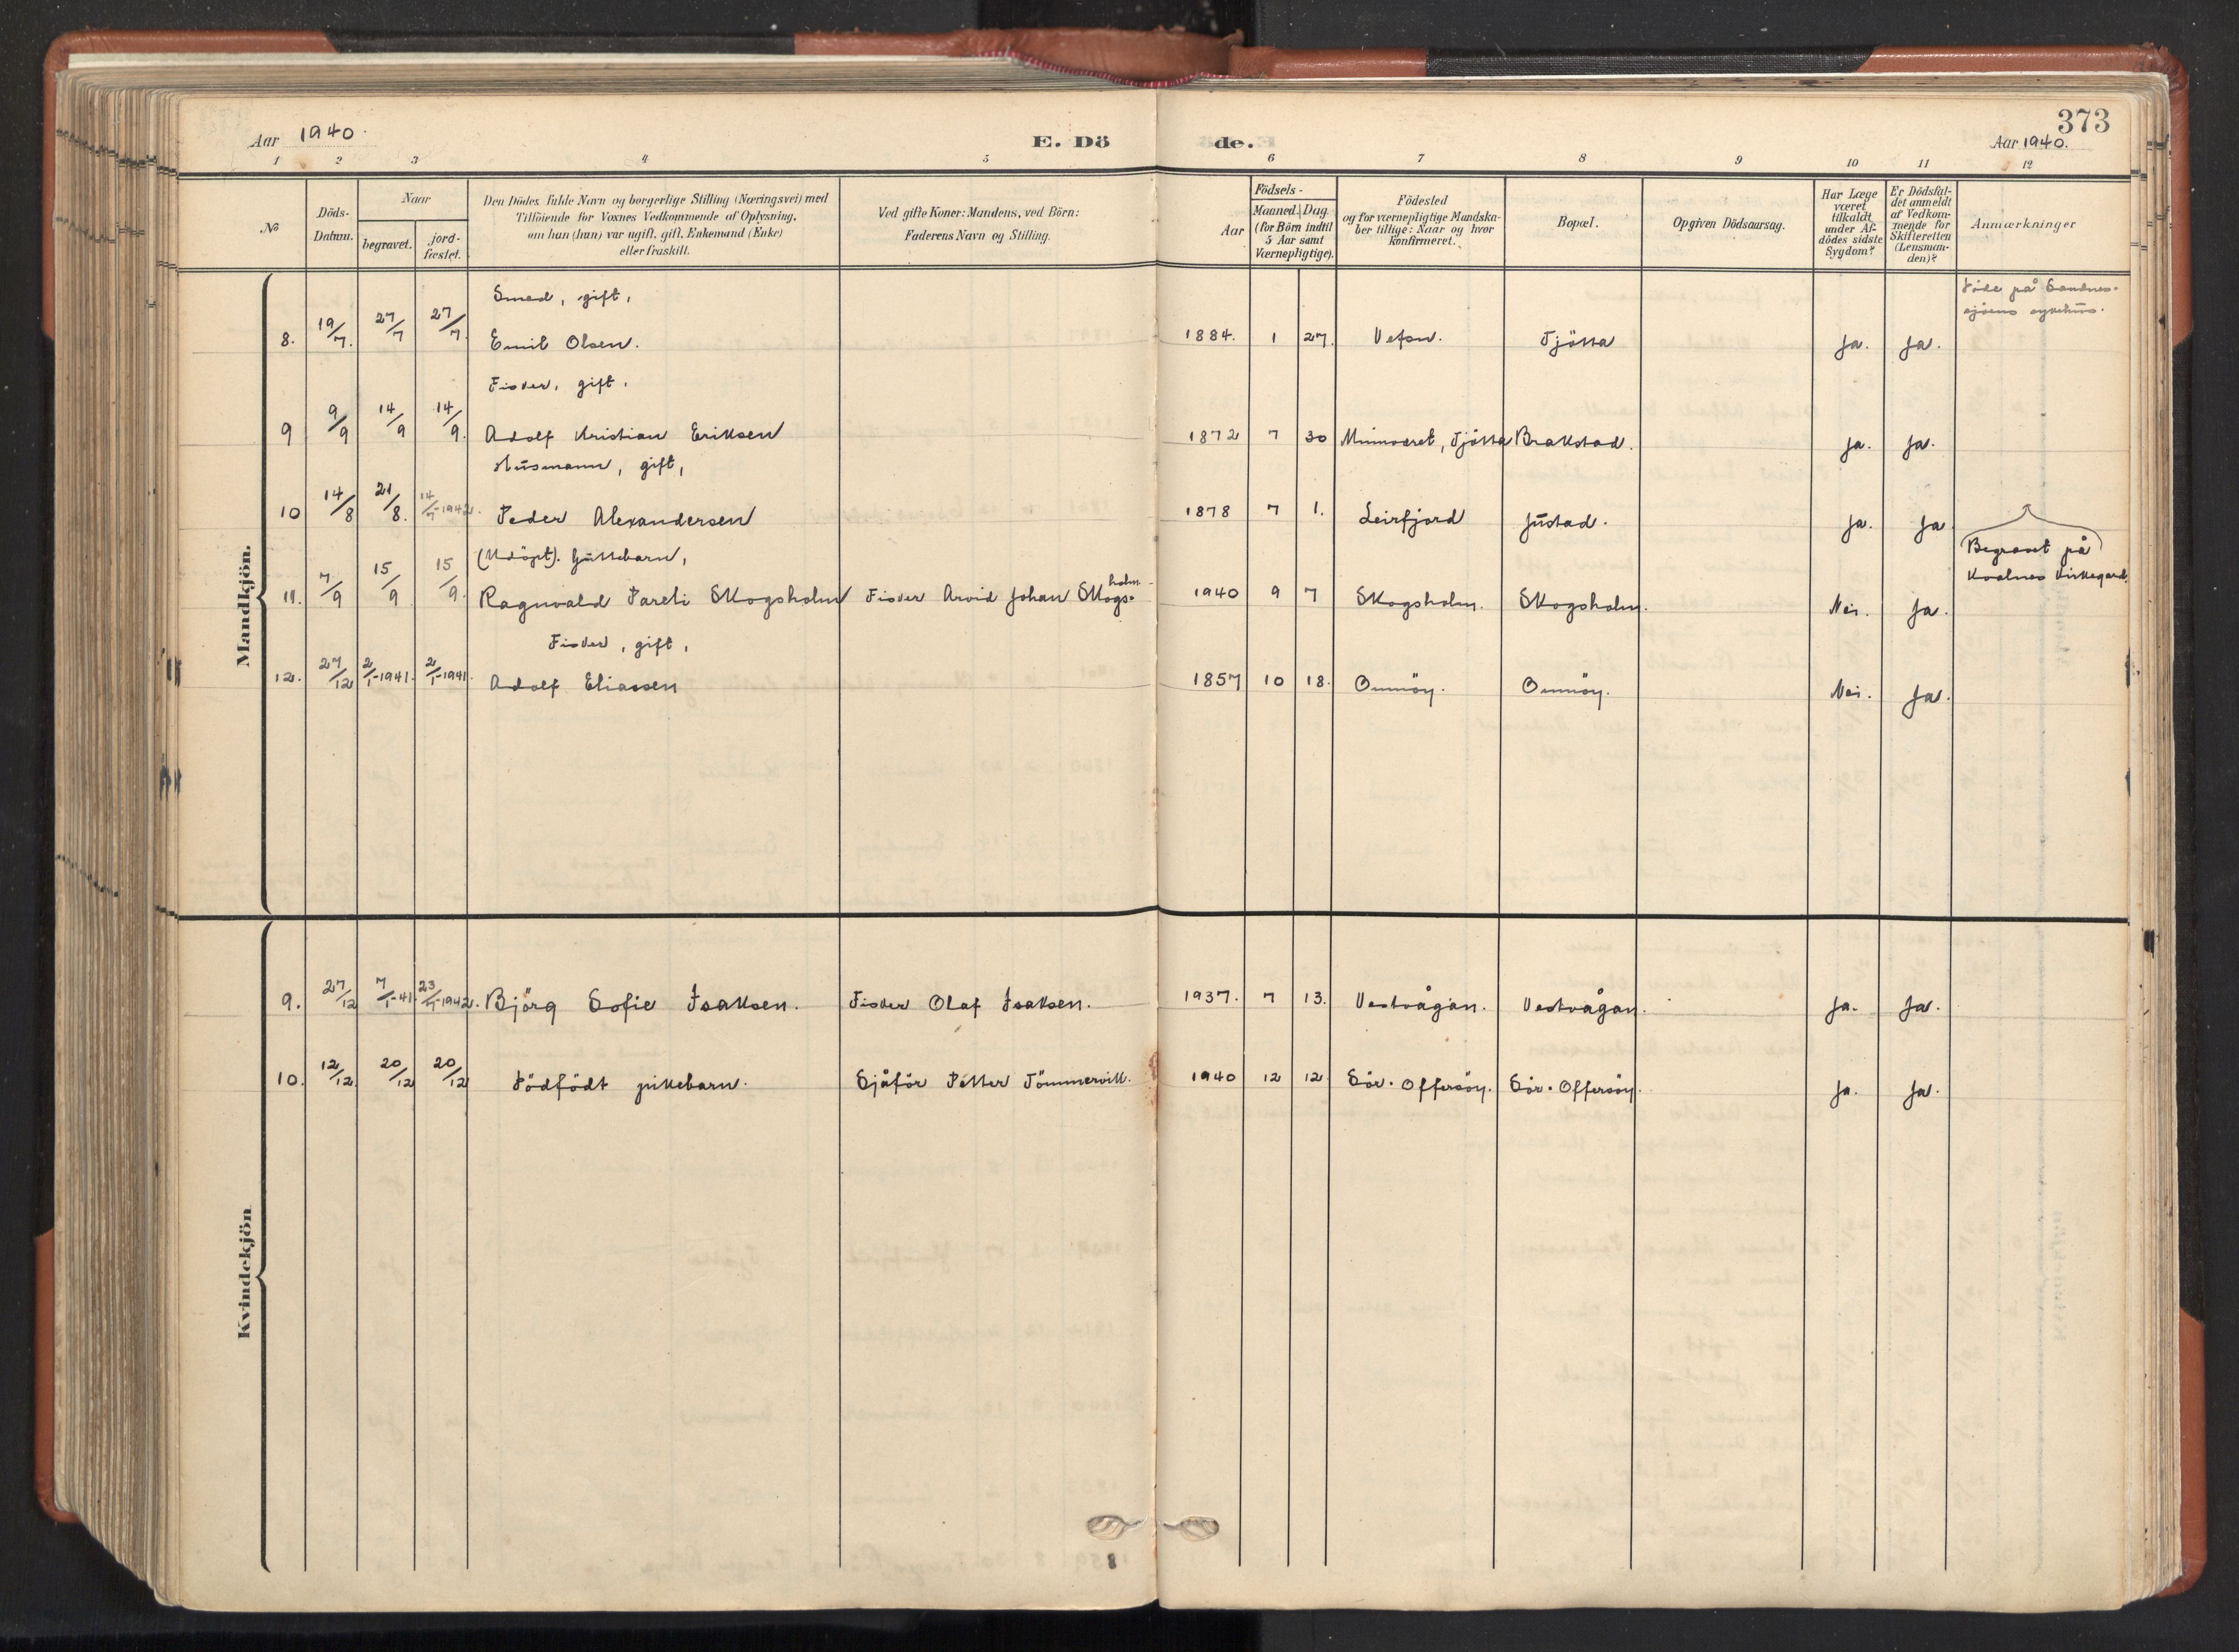 373
Aar 1940. E. Döde. Aar 1940.
1 2 3 4 5 6 7 8 9 10 11 12
№
Döds-Datum.
Naar
begravet.
jord-fæstet.
Den Dödes fulde Navn og borgerlige Stilling (Næringsvei) med
Tilföiende for Voxnes Vedkommende af Oplysning,
om han (hun) var ugift, gift, Enkemand (Enke)
eller fraskilt.
Ved gifte Koner: Mandens, ved Börn:
Faderens Navn og Stilling.
Födsels-
Aar
Maaned. Dag
(for Börn indtil
5 Aar samt
Værnepligtige).
Födested
og for værnepligtige Mandska-
ber tillige: Naar og hvor
konfirmeret.
Bopæl.
Opgiven Dödsaarsag.
Har Læge
været
tilkaldt
under Af-
dödes sidste
Sygdom?
Er Dödsfal-
det anmeldt
af Vedkom-
mende for
Skifteretten
(Lensman-
den)?
Anmærkninger
Mandkjön.
Smed, gift,
8. 19/7. 27/7 27/7. Emil Olsen. 1884. 1 27. Vefsn. Tjötta ja. ja. Döde på Sandnes-
sjøens sykehus.
Fisker, gift.
9 9/9 14/9 14/9. Adolf Kristian Eriksen 1872 7 30 Minnværet, Tjötta Brakstad. ja. ja.
Husmann, gift,
10 14/8 21/8. 14/7-1942. Peder Alexandersen 1878 7 1. Leirfjord Justad. ja. ja
(Begravet på)
Kvalnes Kirkegard.
(Udöpt). Guttebarn,
11. 7/9 15/9 15/9. Ragnvald Pareli Skogsholm Fisker Arvid Johan Skogsholm 1940 9 7 Skogsholm. Skogsholm. Nei. ja.
Fisker, gift,
12. 27/12 2/1-1941. 2/1-1941. Adolf Eliassen 1857 10 18. Omnöy. Omnöy. Nei. ja.
Kvindekjön
9. 27/12 7/1-41. 23/7-1942. Björg Sofie Isaksen. Fisker Olaf Isaksen. 1937. 7 13. Vestvågan. Vestvågan. ja. ja.
10. 12/12. 20/12 20/12 Dödfödt pikebarn. Sjåför Petter Tömmervik. 1940 12 12 Sör. Offersöy. Sör. Offersöy. ja. ja.